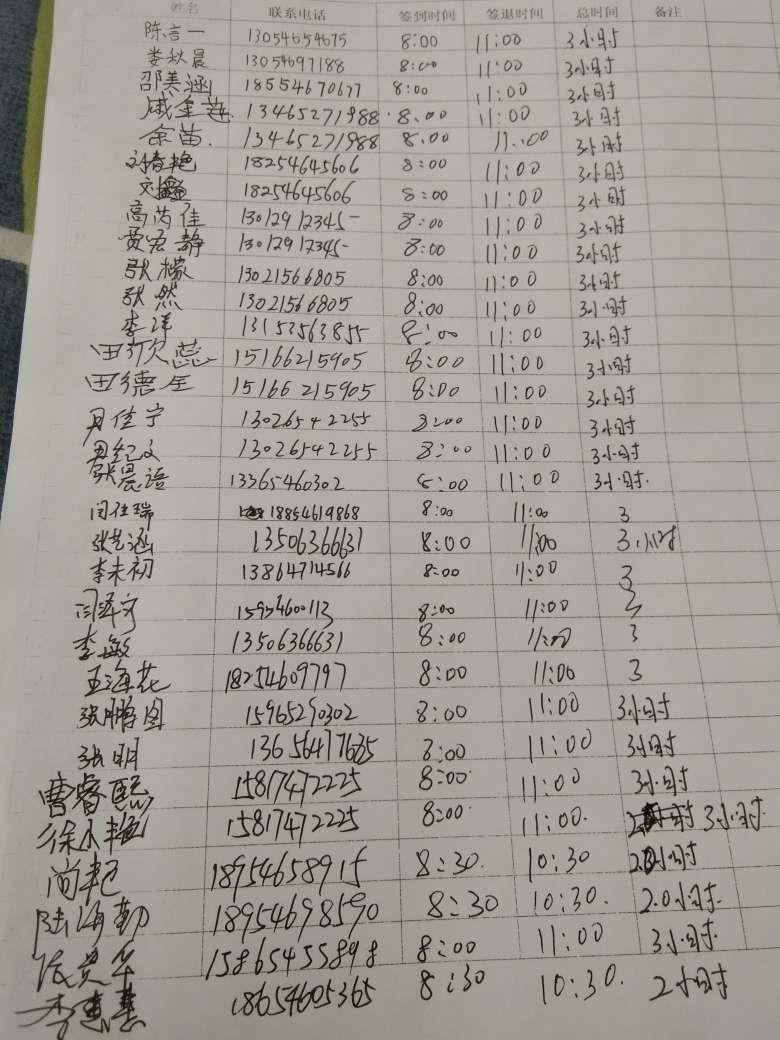 姓名 联系电话 签到时间 签退时间 总时间 备注
陈言一 13054654675 8:00 11:00 3小时
娄秋晨 13054697188 8:00 11:00 3小时
邵美涵 18554670677 8:00 11:00 3小时
戚金莲. 13465271988 8:00 11:00 3小时
余苗. 13465271988 8:00 11:00 3小时
刘春艳 18254645606 8:00 11:00 3小时
18254645606 8:00 11:00 3小时
高芮佳 13012912345 8:00 11:00 3小时
贾宏静 13012912345 8:00 11:00 3小时
张檬 13021566805 8:00 11:00 3小时
张然 13021566805 8:00 11:00 3小时
李洋 13153563855 8:00 11:00 3小时
田欣蕊 15166215905 8:00 11:00 3小时
田德全 15166215905 8:00 11:00 3小时
丹佳宁 13026542255 8:00 11:00 3小时
13026542255 8:00 11:00 3小时
张晨语 13365460302 8:00 11:00 3小时.
闫佳瑞 18854619868 8:00 11:00 3
张艺涵 13506366631 8:00 11:00 3小时
李未初 13864714566 8:00 11:00 3
闫泽宇 15954600113 8:00 11:00 3
李敏 13506366631 8:00 11:00 3
王海花 18254609797 8:00 11:00 3
张鹏图 15965290302 8:00 11:00 3小时
张明 13656477635 8:00 11:00 3小时
曹睿熙 15817472225 8:00 11:00 3小时
徐小艳 15817472225 8:00 11:00. 3小时.
尚艳 18954658915 8:30. 10:30 小时.
陆海勤 18954698590 8:30 10:30. 2.0小时.
15865455898 8:00 11:00 3小时.
李惠慧 18654605365 8:30 10:30. 2小时